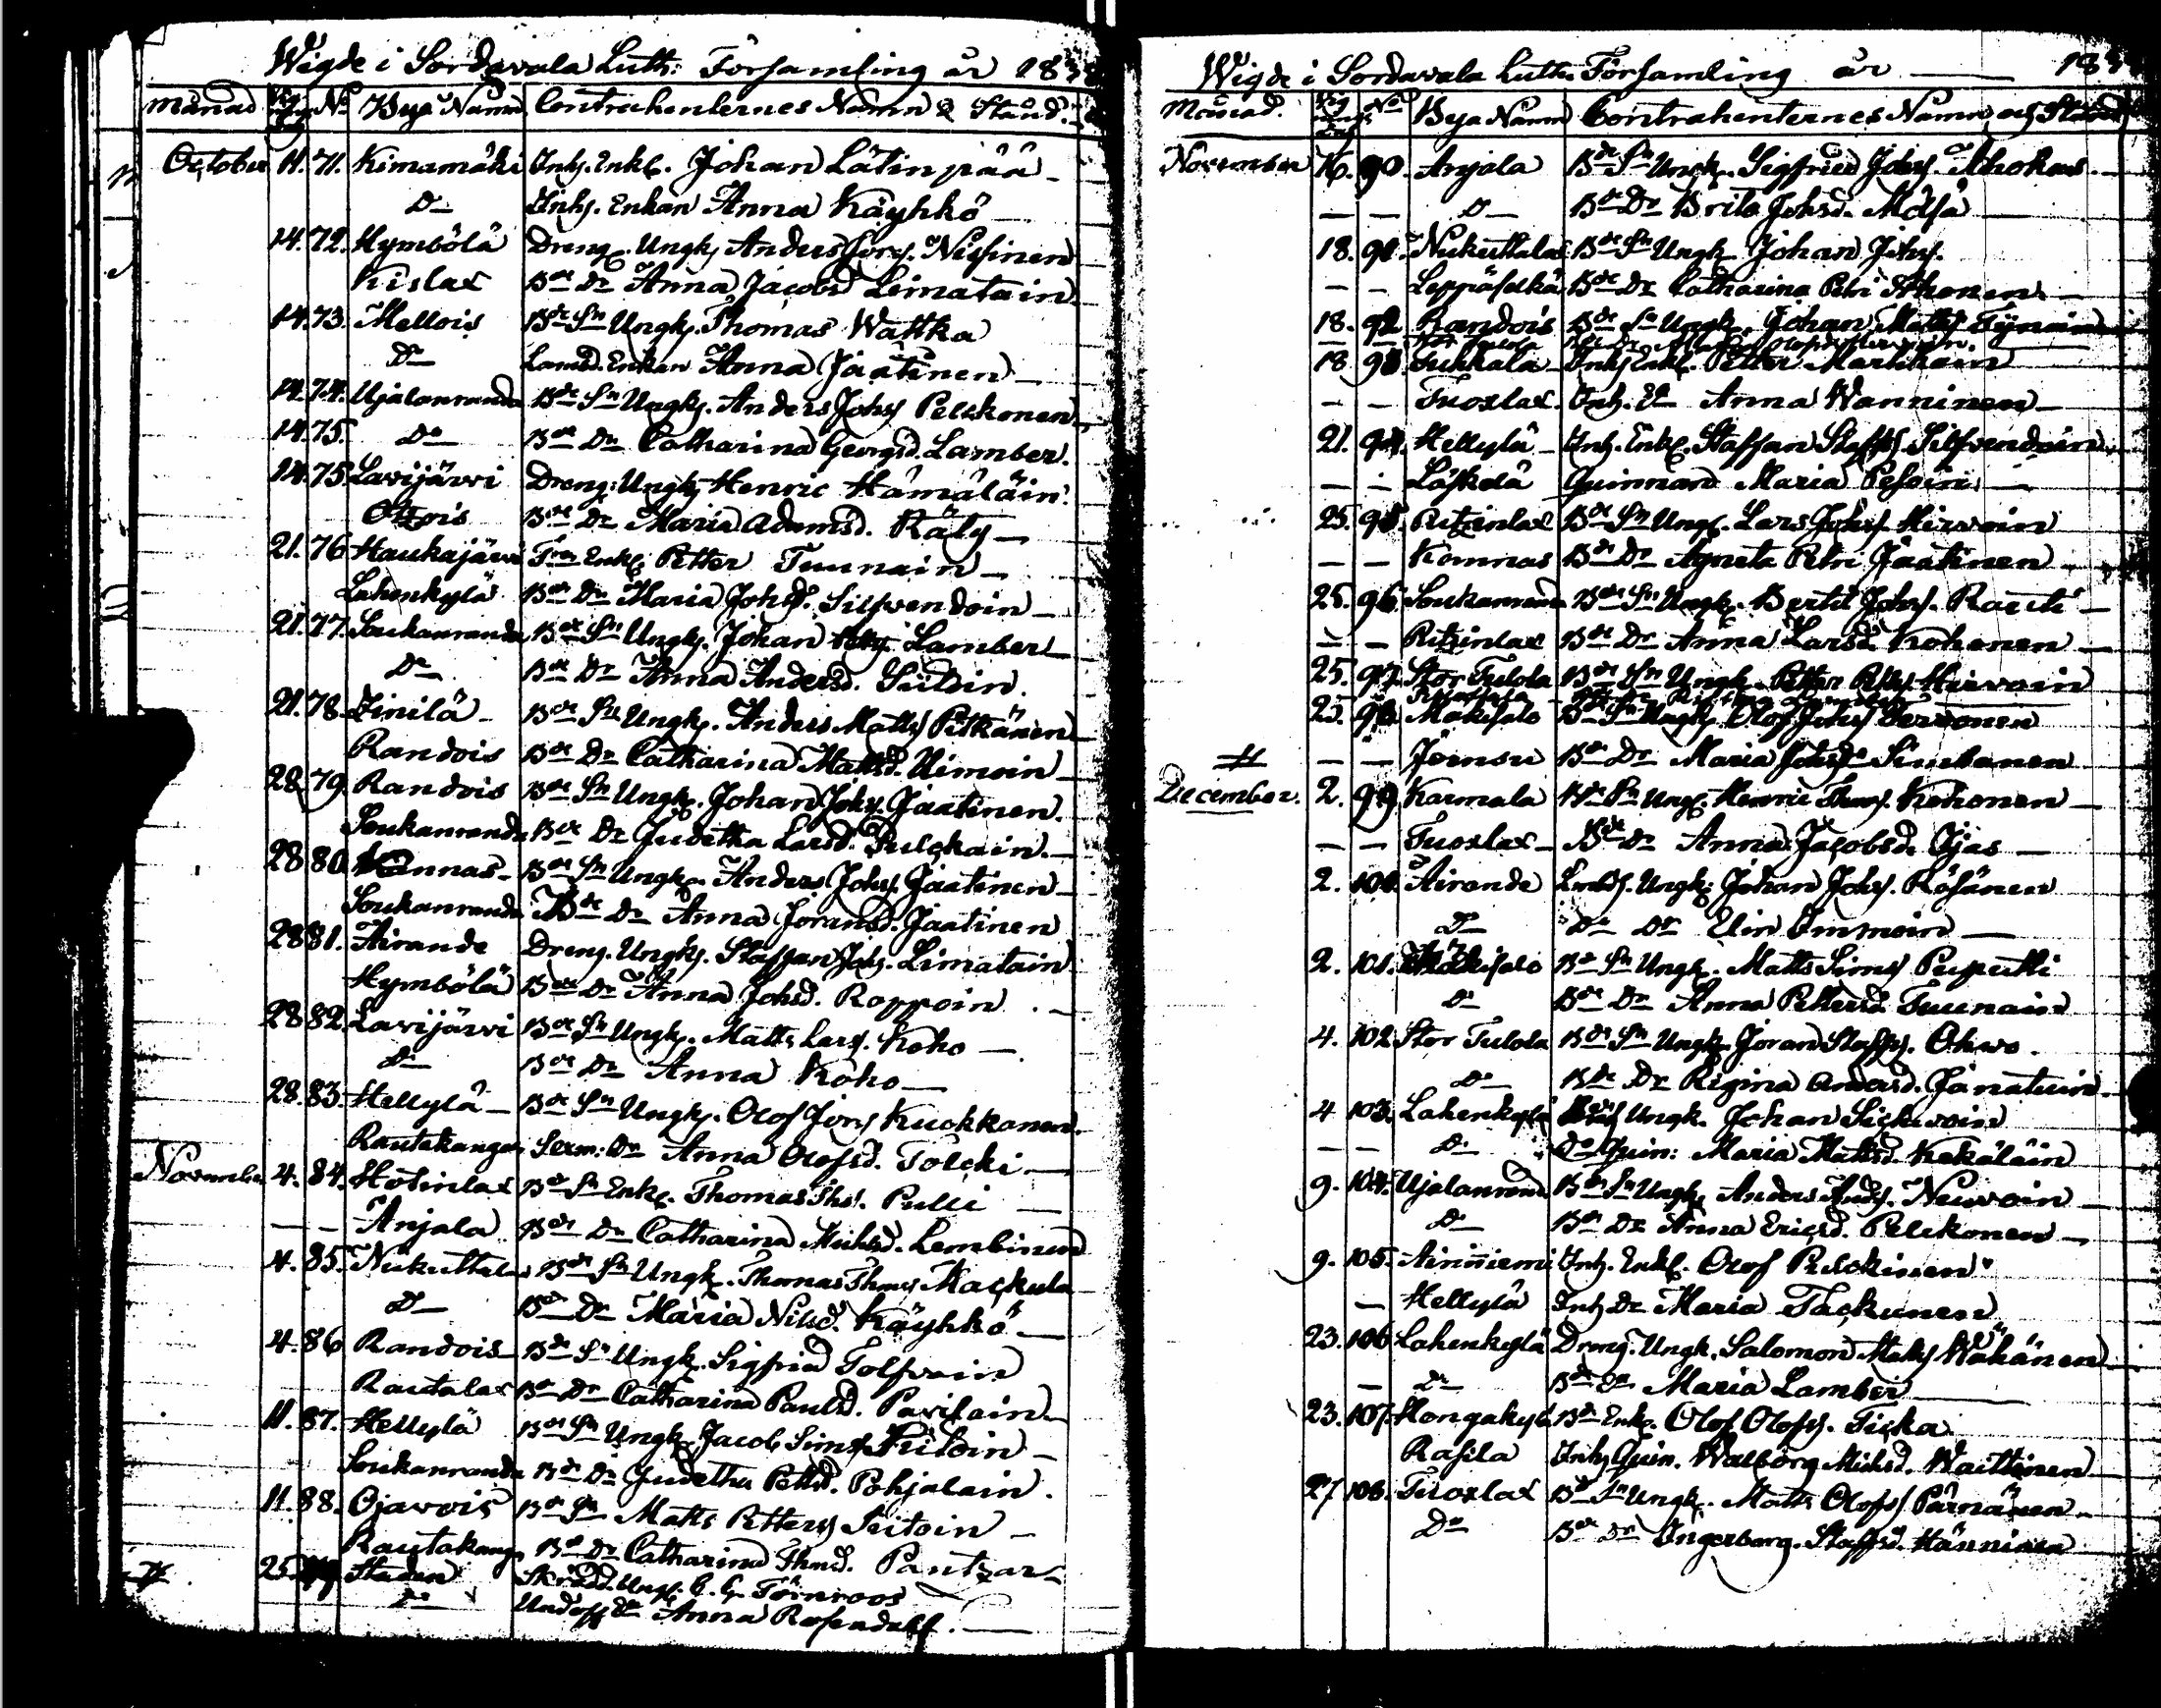 Wigde i Sordavala Luth: Församling år 183
Månad No Bya Namn Contrahenternes Namn & Stånd.
October 11. 71. Kimamäki Inhs. Enkl. Johan Lätinpää
Do Inhs. Enkan Anna Käyhkö
14. 72. Hymbölä Dreng. Ungk. Anders Jörs. Nissinen
Kislax Bde Dr Anna Jacobsd Limatain
14. 73. Mellois Bde Sn Ungk. Thomas Wattka
Do Landb. Enkan Anna Jaatinen
14. 74. Ujalanranda Bde Sn Ungk. Anders Johs Pelckonen
14. 75. Do Bde Dr Catharina Georgsd. Lamber.
14. 75 Lavijärvi Dreng. Ungk Henric Hämäläin
Otsois Bde Dr Maria Adamsd. Räty
21. 76 Haukajärvi Enkl. Petter Tuunain
Lahenkylä Bde Dr Maria Johsd. Silfvendoin
21. 77. Soukanranda Bde Sn Ungk. Johan Lamber
Do Bde Dr Anna Andersd. Siitoin.
21. 78. Zinilä Bde Sn Ungk. Anders Matts Pitkänen
Randois Bde Dr Catharina Mattsd. Uimoin
28 79. Randois Bde Sn Ungk. Johan Johs. Jaatinen.
Soukanranda Bde Dr Judetha Larsd. Pulckain.
28 80 Kannas Bde Sn Ungk. Anders Johs. Jaatinen
Soukanranda Bde Dr Anna Joransd. Jaatinen
28 81. Airande Dreng. Ungk. Staffan Johs. Limatain
Hymbölä Bde Dr Anna Johsd. Roppoin
28 82. Lavijärvi Bde Sn Ungk. Matts Lars. Koho
Do Bde Dr Anna Koho
28. 83. Hellylä Bde Sn Ungk. Olof Jörs Kuokkanen.
Rautakangas Dr Anna Olofsd. Tolcki
November 4. 84. Hotinlax Bde Sn Enkl. Thomas Ths. Pulli
Anjala Bde Dr Catharina Michsd. Lembinen
4. 85. Nukuttalax Bde Sn Ungk. Thomas Thoms Mackula
Do Bde Dr Maria Nilsd. Käyhkö
4. 86 Randois Bde Sn Ungk. Sigfrid Tolfvain
Rautalax Bde Dr Catharina Paulsd. Pavilain
11. 87. Hellylä Bde Sn Ungk. Jacob Sims Siitoin
Soukanranda Bde Dr Judetha Pettsd. Pohjalain.
11. 88. Ojavois Bde Sn Matts Petters Siitoin
Rautakangs Bde Dr Catharina Thmsd. Pantzar
25. Staden Skrädd. Ungk. C. G. Törnroos
Do Undoff Dr Anna Rosendahl.
Wigde i Sordavala Luth. Församling år 183
Månad. No Bya Namn Contrahenternes Namn och Stånd
November 16. 90. Anjala Bde Sn Ungk. Sigfried Johs. Ahokas
Do Bde Dr Brita Johsd. Mäsä
18. 91. Nukuttalax Bde Sn Ungk Johan Johs.
Leppäselkä Bde Dr Catharina Petri Ahonen
18. 92 Randois Bde Sn Ungk. Johan Matts Tynnin
Stor Tulola Bde Dr
18 93. Sukkala Inhs Enkl. Petter Markkain
Tuoxlax. Inh. Ea Anna Wanninen
21. 94. Hellylä Inh. Enkl. Staffan Staffs. Silfvendoin
Läskelä Quinnan Maria Pesoin
25. 95. Ritzinlax Bde Sn Ungk. Lars Johs Hirvoin
Kannas Bde Dr Agneta Petri Jaatinen
25. 96. Soukanranda Bde Sn Ungk. Bertil Johs. Rauti
Ritzinlax Bde Dr Anna Larsd. Kohonen
25. 97. Stor Tulola Bde Sn Ungk. Petter Petters. Hirvoin
25. 98. Makisalo Bde Sn Ungk. Olof Johs Tervonen
Joensu Bde Dr Maria Johsd.
December. 2. 99. Karmala Bde Sn Ungk. Henric Thoms. Kohonen
Tuoxlax Bde Dr Anna Jacobsd. Ojas
2. 100. Airande Landb. Ungk. Johan Johs. Räsänen
Do Do Dr Elin Immoin
2. 101. Mäkisalo Bde Sn Ungk. Matts Sims Puputti
Do Bde Dr Anna Pettersd. Tuunain
4. 102 Stor Tulola Bde Sn Ungk. Joran Staffs. Ohvo.
Do Bde Dr Rigina Andersd. Jänatuin
4 103. Lahenkylä Ungk. Johan Sickevoin
Do Do Quin: Maria Mattsd. Kekäläin
9. 104. Ujalanranda Bde Sn Ungk Anders Ands. Neuvoin
Do Bde Dr Anna Ericsd. Pelckonen
9. 105. Airinniemi Inh. Enkl. Olof Pulckinen
Hellylä Inh Dr Maria Tackunen
23. 106 Lahenkylä Dreng. Ungk. Salomon Matts Wäkänen
Do Bde Dr Maria Lamber
23. 107. Hongakyl. Bde Enkl. Olof Olofs. Ticka
Rasila Inh Quin. Walborg Michsd. Waittinen
27 108. Tuoxlax Bde Sn Ungk. Matts Olofs Pärnänen
Do Bde Dr Ingerborg. Staffsd. Hänninen